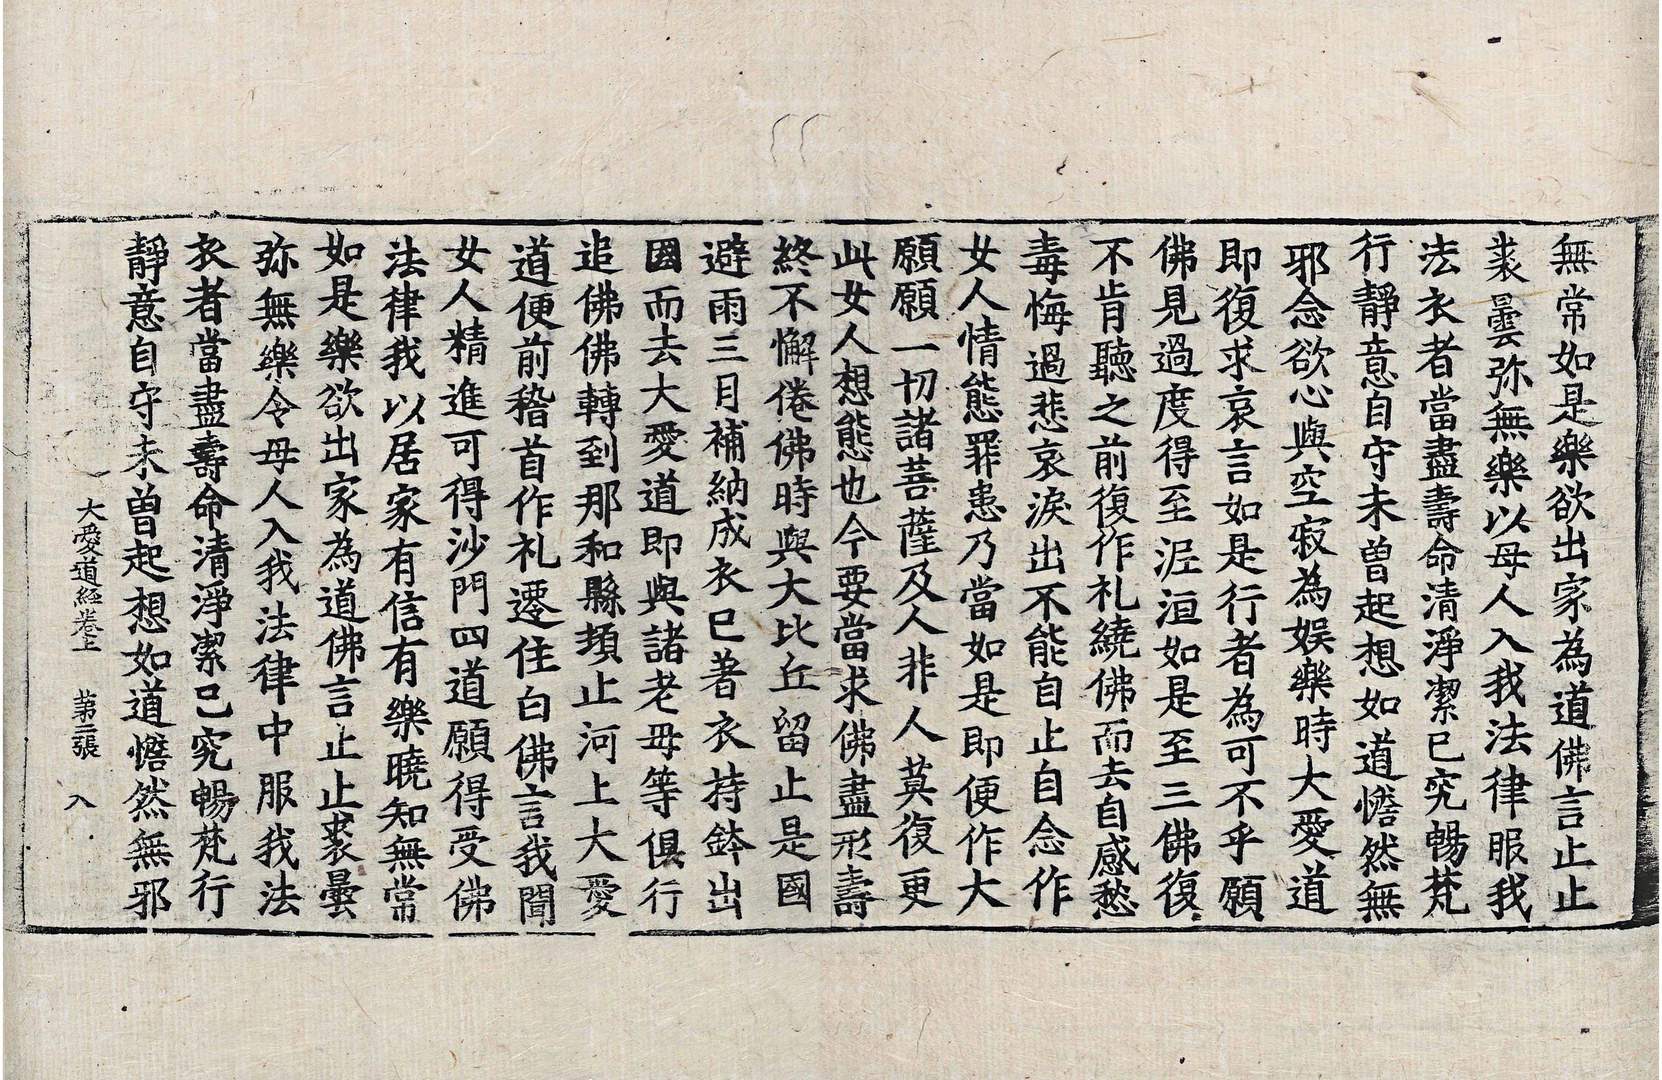 無常如是樂欲出家為道佛言止止
裘曇弥無樂以母人入我法律服我
法衣者當盡壽命清淨潔已究暢梵
行靜意自守未曽起想如道惔然無
邪念欲心與空寂為娛樂時大愛道
即復求哀言如是行者為可不乎願
佛見過度得至泥洹如是至三佛復
不肯聽之前復作礼繞佛而去自感愁
毒悔過悲哀淚出不能自止自念作
女人情態罪恚乃當如是即便作大
願願一切諸菩薩及人非人莫復更
此女人想態也今要當求佛盡形壽
終不懈倦佛時與大比丘留止是國
避雨三月補納成衣已著衣持鉢出
國而去大愛道即與諸老母等俱行
追佛佛轉到那和縣頞止河上大愛
道便前稽首作礼遷住白佛言我聞
女人精進可得沙門四道願得受佛
法律我以居家有信有樂曉知無常
如是樂欲出家為道佛言止止裘曇
弥無樂令母人入我法律中服我法
衣者當盡壽命清淨潔已究暢梵行
靜意自守未曽起想如道惔然無邪
大愛道經卷上 苐三張 入